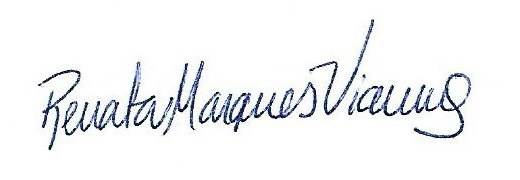 Renata Marques Vianna